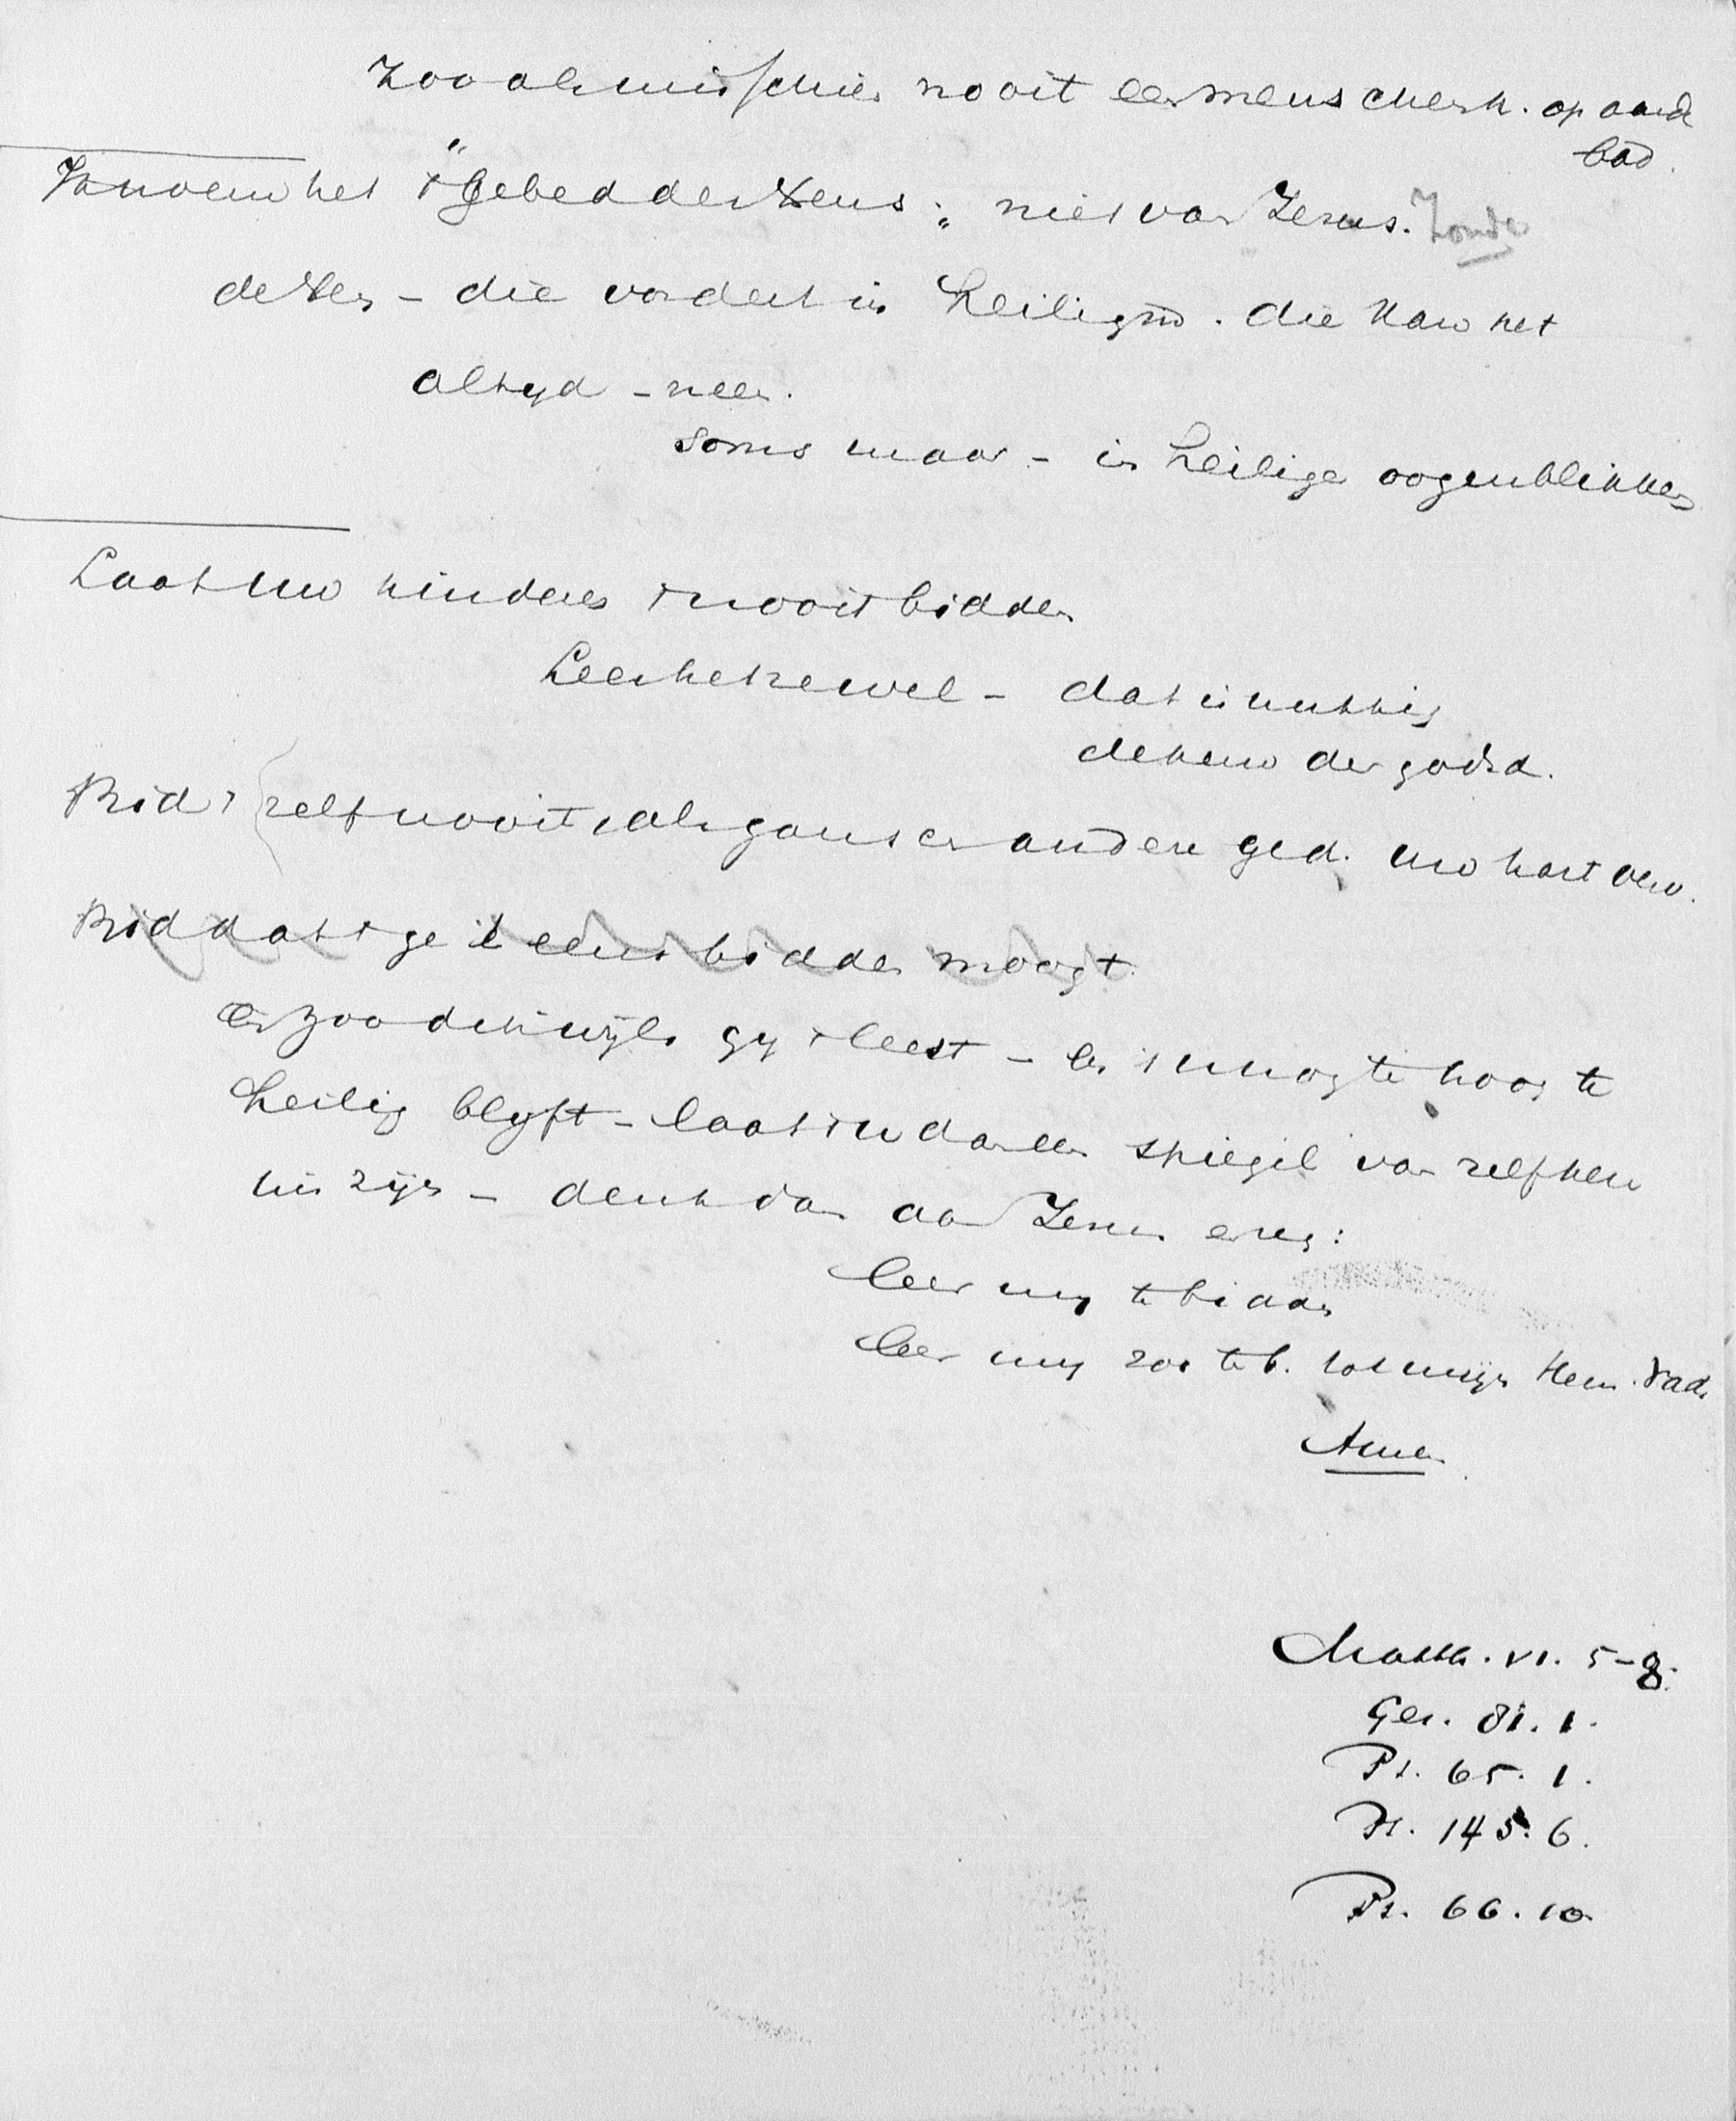 Zoo als misschien nooit een mensch ... op aard
bad.
Ik noem het 't "Gebed des ... " niet van Jezus. Zonde
de ... – die vordert in heiligm. die kan het
altyd – neen.
Soms maar – in heilige oogenblikken
Laat uw kinderen 't nooit bidden
Leer het ze wel – dat is nuttig
... der godsd.
Bid 't zelf nooit als gansch andere ged. uw hart verv.
Bid dat ge 't eens bidden moogt.
En zoo dikwijls gy 't leest – en 't u nog te hoog te
heilig blyft – laat 't u dan een spiegel van zelfken
nis zijn – denk dan aan Jezus en zeg:
leer my te bidden
leer my zoo te b. tot mijn Hem. Vad.
Amen
Matth. VI. 5-8.
Gez. 81. 1.
Ps. 65. 1.
Ps. 145. 6.
Ps. 66. 10